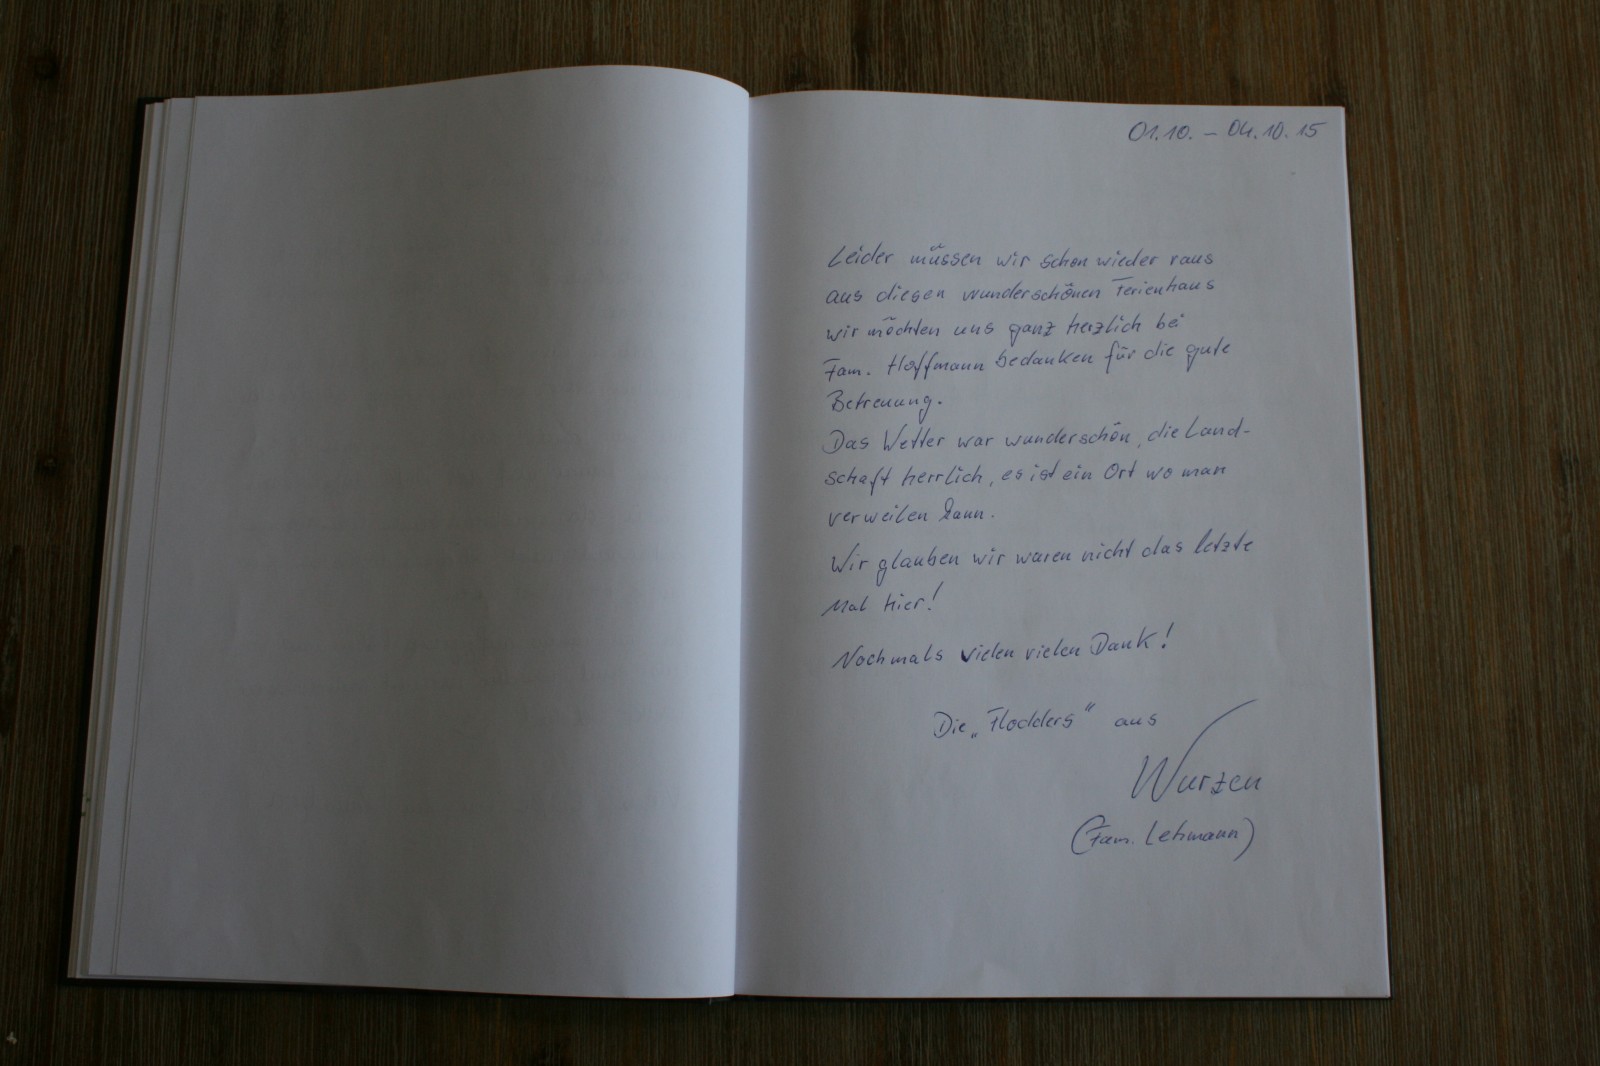 01.10. – 04.10.15
Leider müssen wir schon wieder raus
aus diesen wunderschönen Ferienhaus
wir möchten uns ganz herzlich bei
Fam. Hoffmann bedanken für die gute
Betreuung.
Das Wetter war wunderschön, die Land-
schaft herrlich, es ist ein Ort wo man
verweilen kann.
Wir glauben wir waren nicht das letzte
Mal hier!
Nochmals vielen vielen Dank!
Die „Flodders" aus
Wurzen
(Fam. Lehmann)